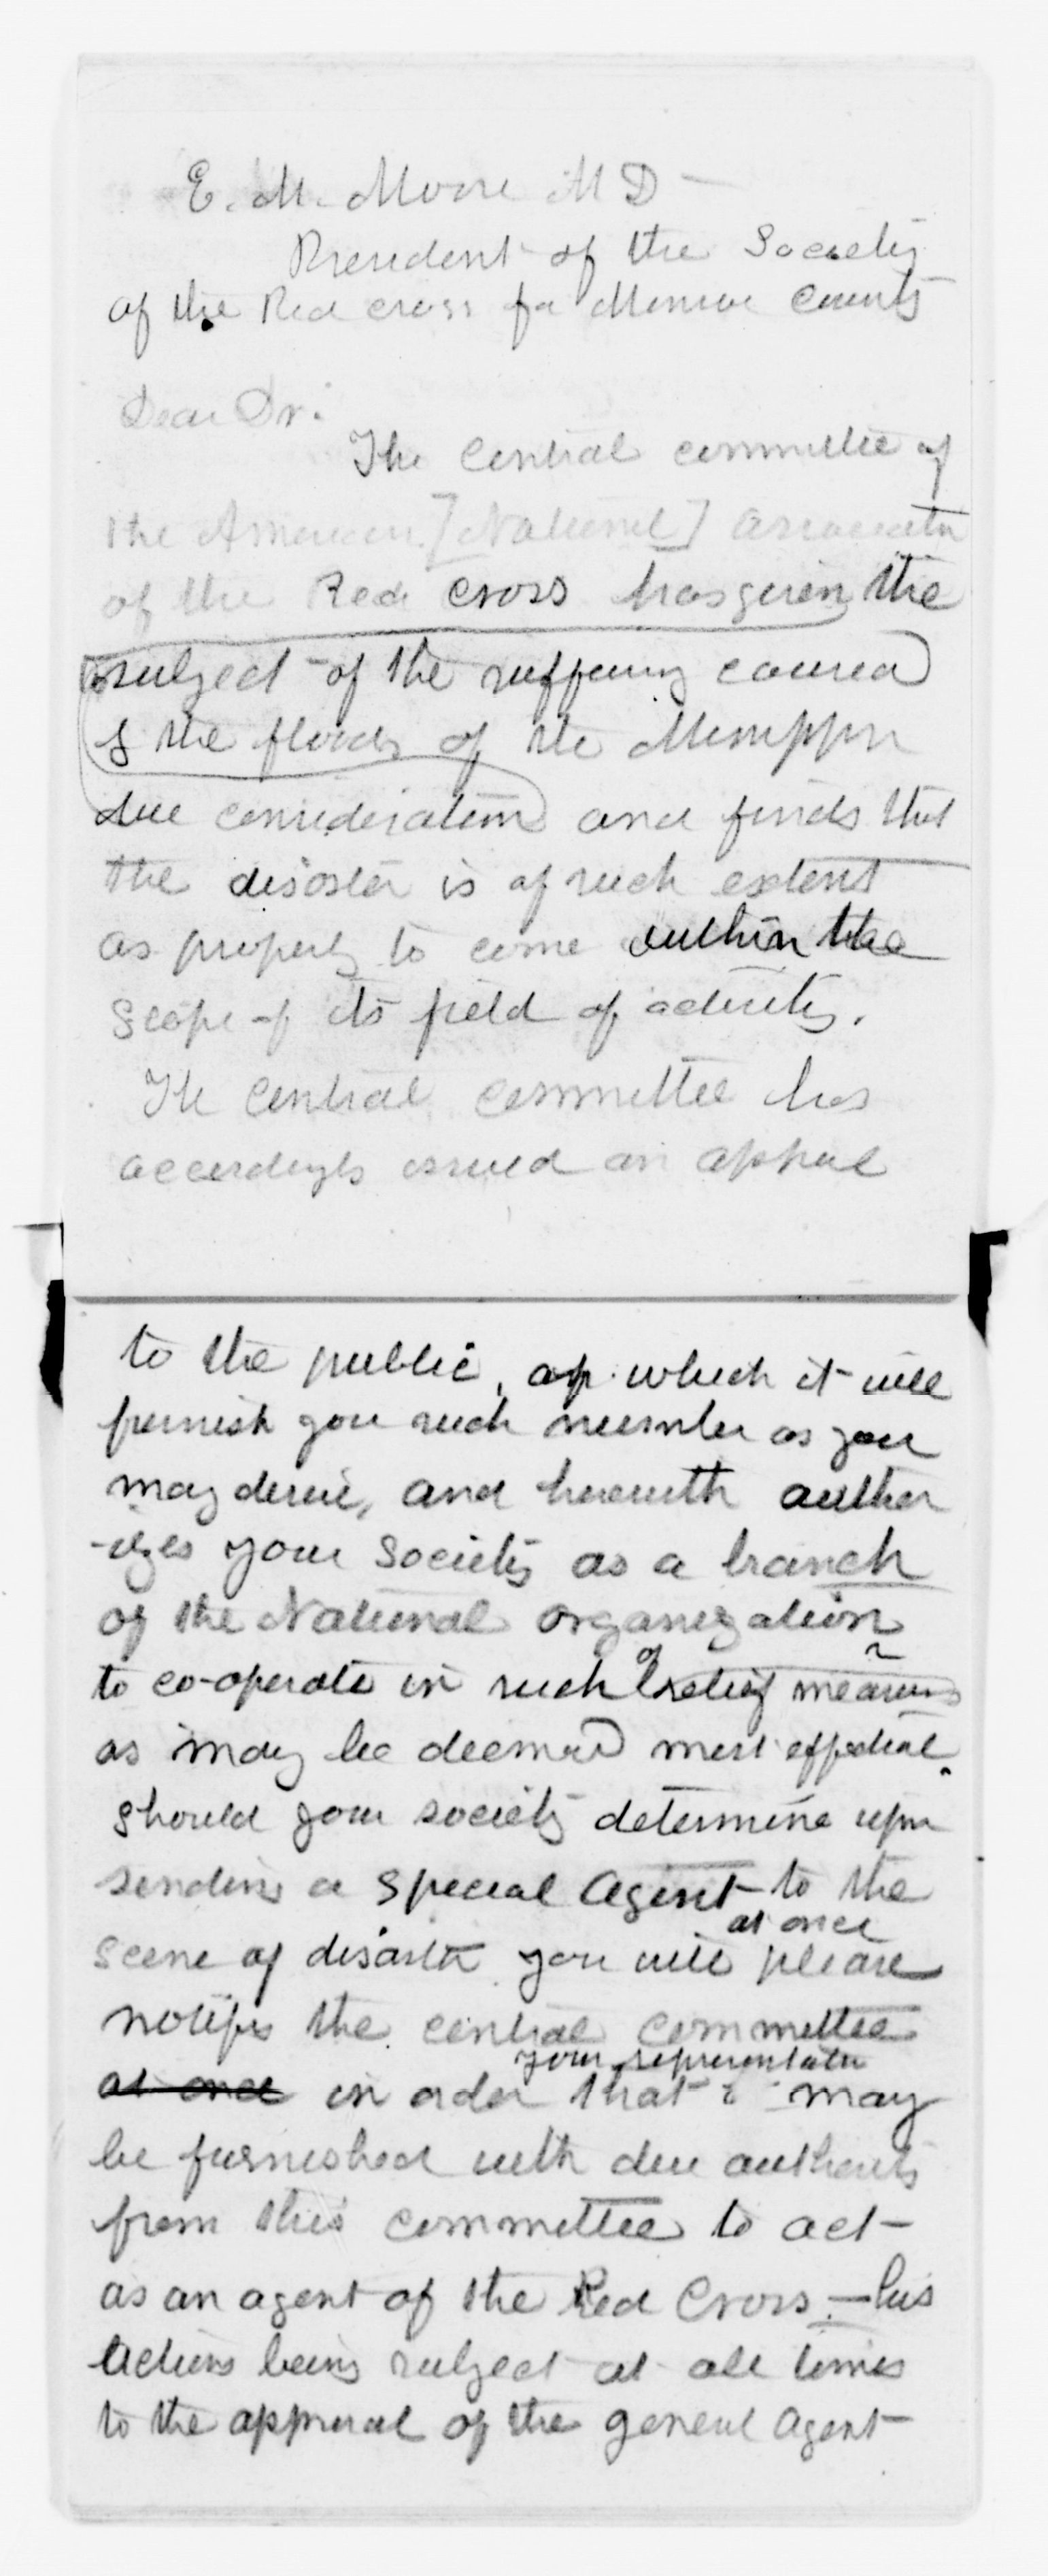 E. M. Moore M D -
President of the Society
of the Red cross for Monroe County
Dear Dr.
The Central committee of
the American [National] Association
of the Red cross has given the
subject of the suffering caused
& the floods of the Mississippi
due consideration and finds that
the disaster is of such extent
as properly to come within the
scope of its field of activity.
The Central committee has
accordingly issued an appeal
to the public, of which it will
furnish you such number as you
may desire, and herewith author
-izes your society as a branch
of the National organization
to co-operate in such of relief measures
as may be deemed most effectual.
Should your society determine upon
sending a special agent to the
at once
scene of disaster you will please
notify the central committee
your representative
at once in order that may
be furnished with due authority
from this committee to act -
as an agent of the Red Cross - his
actions being subject at all times
to the approval of the general agent